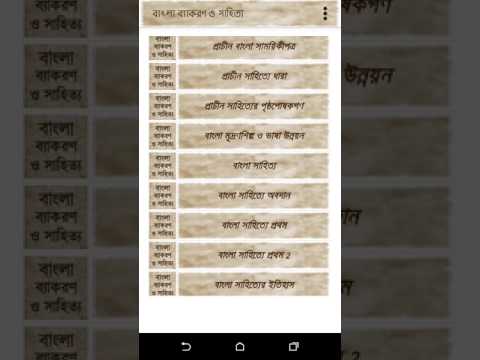 বাংলা ব্যাকরণ ও সাহিত্য
বাংলা
ব্যাকরণ
ও সাহিত্য
প্রাচীন বাংলা সাময়িকীপত্র
বাংলা
ব্যাকরণ
ও সাহিত্য
প্রাচীন সাহিত্যে ধারা
বাংলা
ব্যাকরণ
ও সাহিত্য
প্রাচীন সাহিত্যের পৃষ্ঠপোষকগণ
বাংলা
ব্যাকরণ
ও সাহিত্য
বাংলা মুদ্রণশিল্প ও ভাষা উন্নয়ন
বাংলা
ব্যাকরণ
ও সাহিত্য
বাংলা সাহিত্য
বাংলা
ব্যাকরণ
ও সাহিত্য
বাংলা সাহিত্যে অবদান
বাংলা
ব্যাকরণ
ও সাহিত্য
বাংলা সাহিত্যে প্রথম
বাংলা
ব্যাকরণ
ও সাহিত্য
বাংলা সাহিত্যে প্রথম 2
বাংলা
ব্যাকরণ
ও সাহিত্য
বাংলা সাহিত্যের ইতিহাস
উন্নয়ন
বাংলা
ব্যাকরণ
ও সাহিত্য